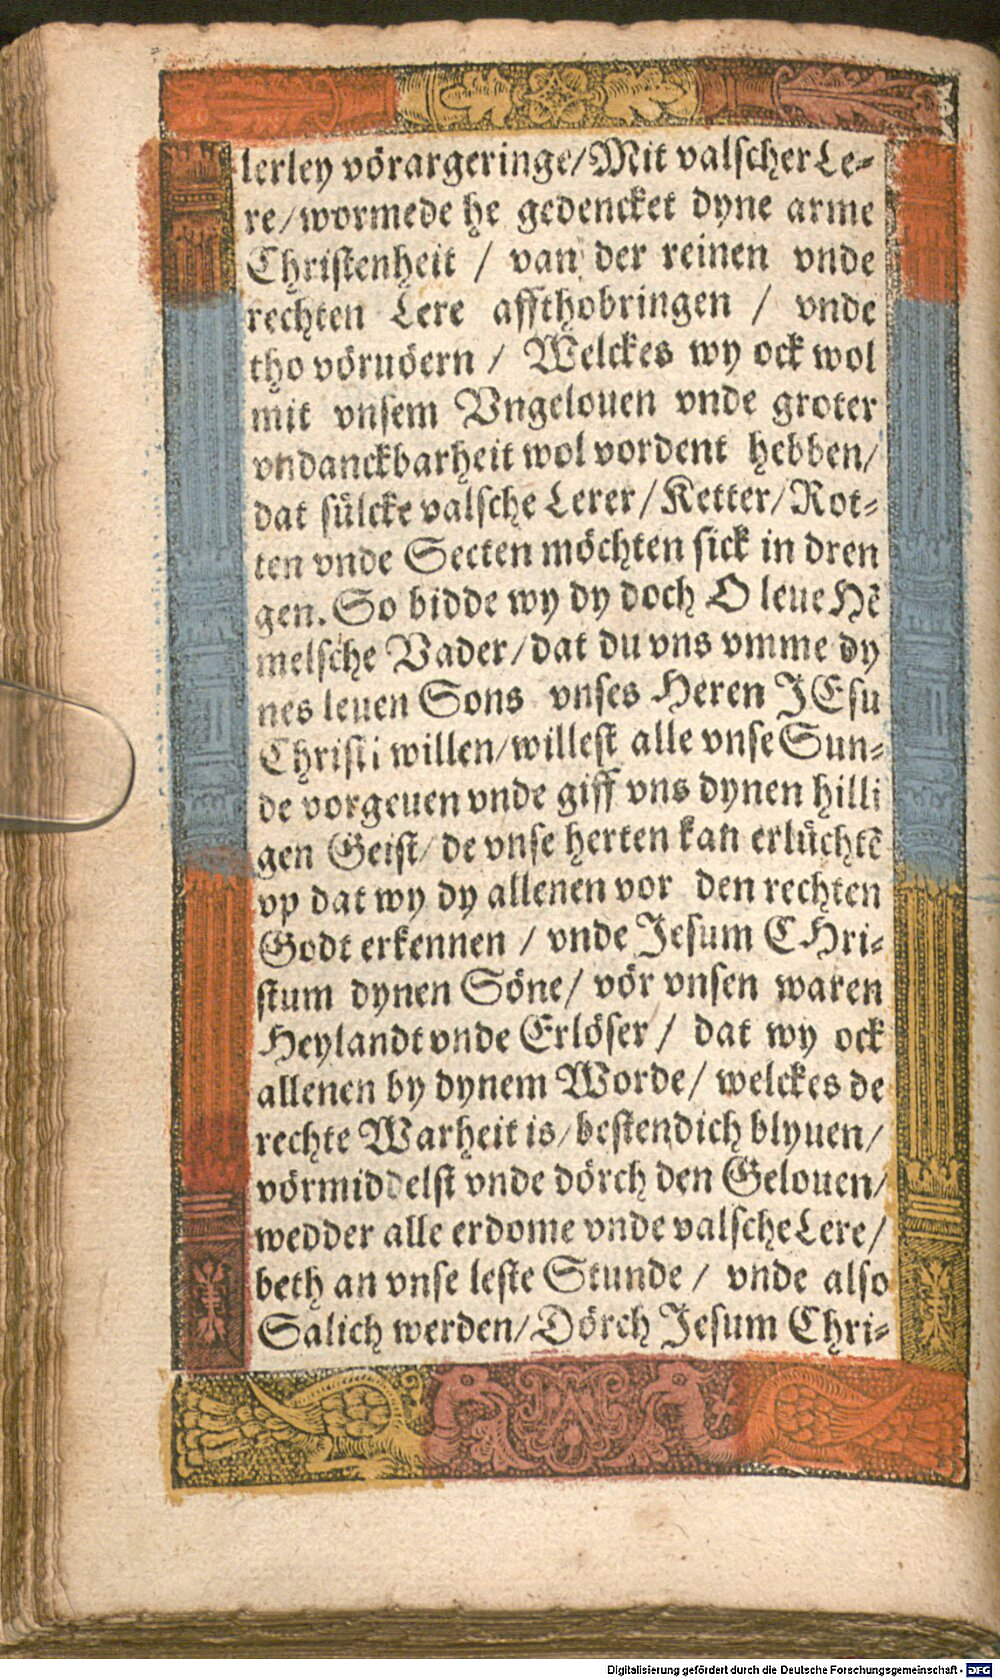 lerley vörargeringe/Mit valscher Le⸗
re/wormede he gedencket dyne arme
Christenheit / van der reinen vnde
rechten Lere affthobringen / vnde
tho vöruöern / Welckes wy ock wol
mit vnsem Vngelouen vnde groter
vndanckbarheit wol vordent hebben/
dat sülcke valsche Lerer/Ketter/Rot⸗
ten vnde Secten möchten sick in dren
gen. So bidde wy dy doch O leue Hē
melsche Vader/dat du vns vmme dy
nes leuen Sons vnses Heren JEsu
Christi willen/willest alle vnse Sun⸗
de vorgeuen vnde giff vns dynen hilli
gen Geist/de vnse herten kan erlüchtē
vp dat wy dy allenen vor den rechten
Godt erkennen / vnde Jesum CHri⸗
stum dynen Söne/ vör vnsen waren
Heylandt vnde Erlöser/ dat wy ock
allenen by dynem Worde/ welckes de
rechte Warheit is/bestendich blyuen/
vörmiddelst vnde dörch den Gelouen/
wedder alle erdome vnde valsche Lere/
beth an vnse leste Stunde/ vnde also
Salich werden/Dörch Jesum Chri⸗
Digitalisierung gefördert durch die Deutsche Forschungsgemeinschaft - DFG